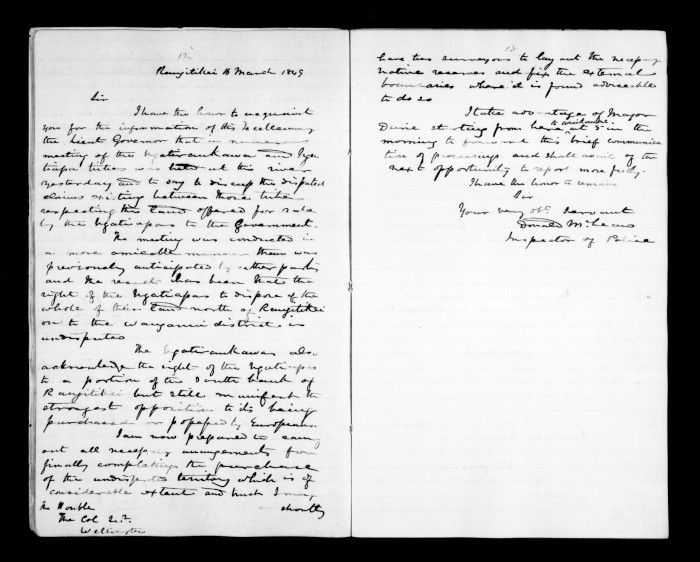 12
Rangitikei 16 March 1849
Sir
I have the honor to acquaint
you for the information of His Excellency
the Lieut Governor that a numerous
meeting of the Ngatiraukawa and Nga
tiapa tribes was held at this river
yesterday and to day to discuss the disputed
claims existing between those tribes
respecting the land offered for sale
by the Ngatiapas to the Government.
The meeting was conducted in
a more amicable manner than was
previously anticipated by either party
and the result has been that the
right of the Ngatiapas to dispose of the
whole of their land north of Rangitikei
on to the Wanganui district is
undisputed
The Ngatiraukawas also
acknowledge the right of the Ngatiapas
to a portion of the South bank of
Rangitikei but still manifest the
strongest opposition to its being
purchased or possessed by Europeans.
I am now prepared to carry
out all necessary arrangements for
finally completing the purchase
of the undisputed territory which is of
considerable extent and trust I may
The Honble shortly
The Col Secy.
Wellington
13
have two surveyors to lay out the necessary
native reserves and fix the external
boundaries where it is found adviseable
to do so
I take advantage of Major
Durie starting from here at 5 in the
morning to forward this brief communica
tion of proceedings and shall avail of the
next opportunity to report more fully.
I have the honor to remain
Sir
Your very obt. servant
Donald McLean
Inspector of Police